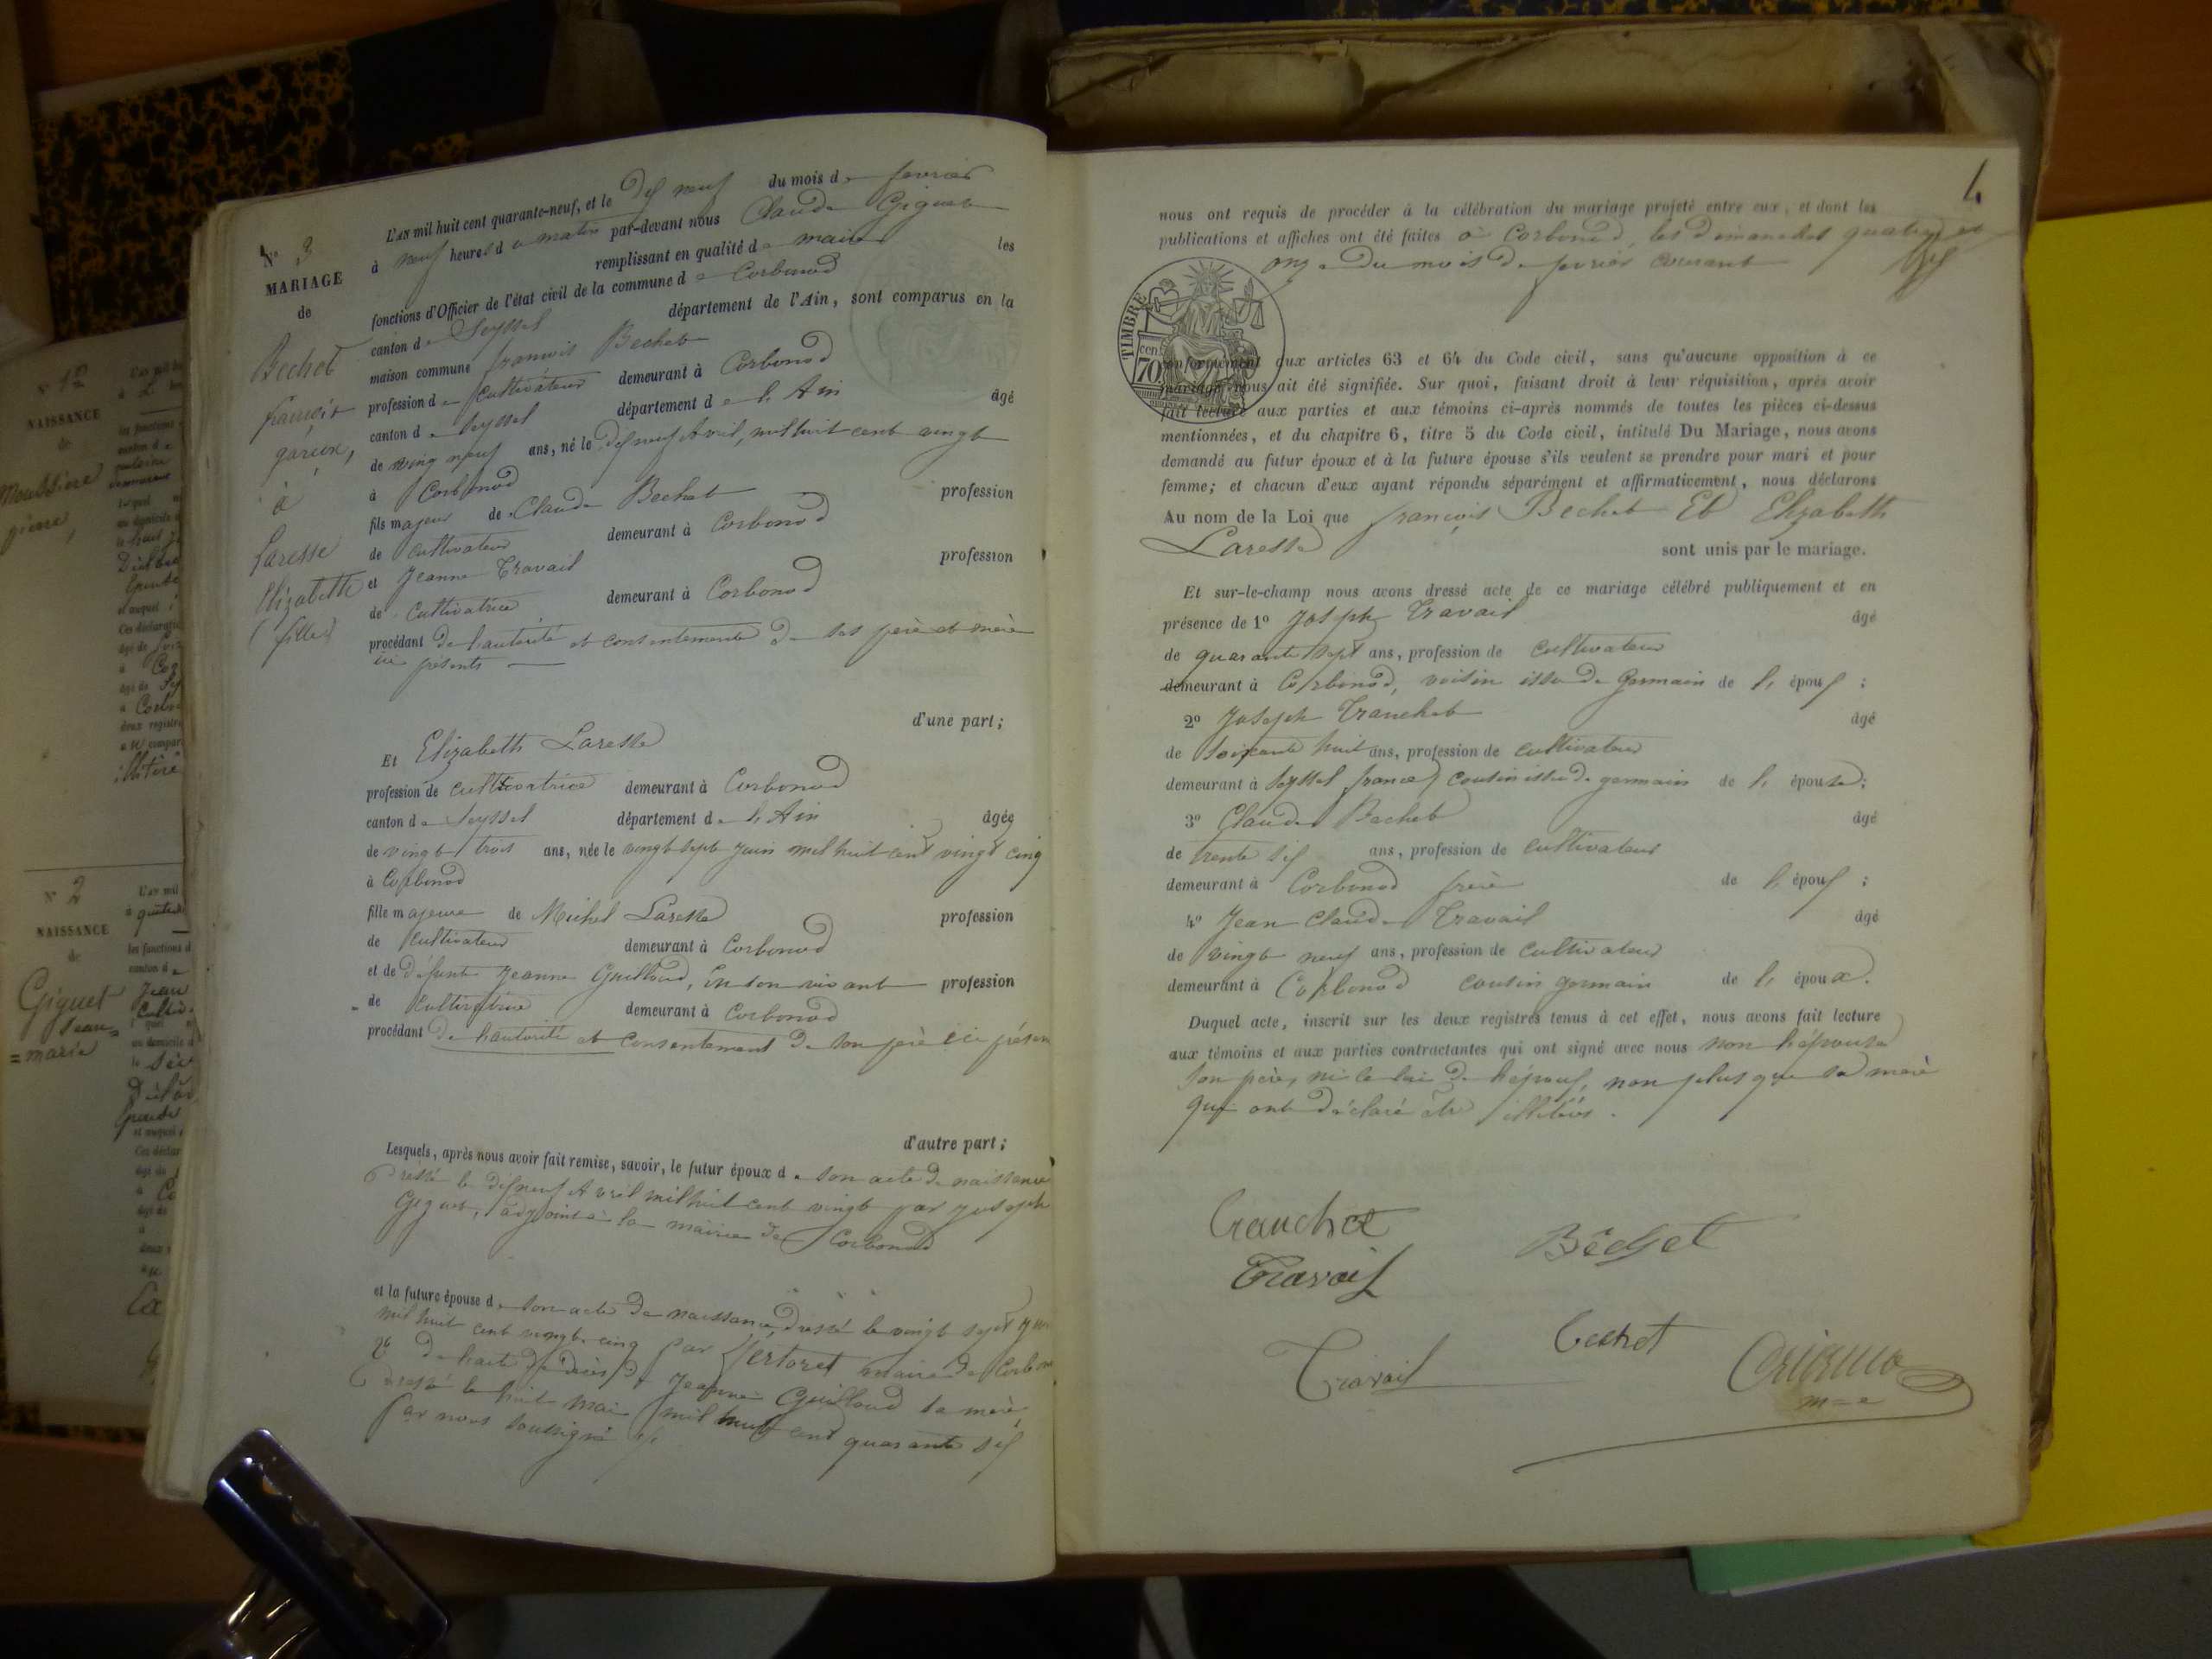 N° 3
MARIAGE
de
Bechet
françois
garçon,
à
Laresse
Elizabeth
(fille)
L'AN mil huit cent quarante-neuf, et le dix neuf du mois de fevrier
à neuf heures du matin par-devant nous Claude Giguet
remplissant en qualité de maire les
fonctions d'Officier de l'état civil de la commune de Corbonod
canton de Seyssel département de l'Ain, sont comparus en la
maison commune françois Bechet
profession de cultivateur demeurant à Corbonod
canton de Seyssel département de l'Ain âgé
de ving neuf ans, né le dix neuf Avril, mil huit cent vingt
à Corbonod
fils majeur de Claude Bechet profession
de cultivateur demeurant à Corbonod
et Jeanne Travail profession
de cultivatrice demeurant à Corbonod
procédant de l'autorité et consentement de ses père et mère
ici présents
d'une part;
Et Elizabeth Laresse
profession de cultivatrice demeurant à Corbonod
canton de Seyssel département de l'Ain âgée
de vingt trois ans, née le vingt sept juin mil huit cent vingt cinq
à Corbonod
fille majeure de Michel Laresse profession
de cultivateur demeurant à Corbonod
et de défunte Jeanne Guilloud, en son vivant profession
de cultivatrice demeurant à Corbonod
procédant de l'autorité et consentement de son père ici présen
d'autre part;
Lesquels, après nous avoir fait remise, savoir, le futur époux de son acte de naissance
dressé le dix neuf Avril mil huit cent vingt par joseph
Giguet, adjoint à la mairie de Corbonod
et la future épouse de son acte de naissance, dressé le vingt sept juin
mil huit cent vingt cinq par maire de Corbonod
2° de l'acte de décès de Jeanne Guilloud sa mère,
dressé le huit mai mil huit cent quarante six
par nous soussigné
4
nous ont requis de procéder à la célébration du mariage projeté entre eux, et dont les
publications et affiches ont été faites à Corbonod, les dimanches quatre et
onze du mois de fevrier courant
TIMBRE
70 cen.
conformément aux articles 63 et 64 du Code civil, sans qu'aucune opposition à ce
mariage nous ait été signifiée. Sur quoi, faisant droit à leur réquisition, après avoir
fait lecture aux parties et aux témoins ci-après nommés de toutes les pièces ci-dessus
mentionnées, et du chapitre 6, titre 5 du Code civil, intitulé Du Mariage, nous avons
demandé au futur époux et à la future épouse s'ils veulent se prendre pour mari et pour
femme; et chacun d'eux ayant répondu séparément et affirmativement, nous déclarons
Au nom de la Loi que françois Bechet Et Elizabeth
Laresse sont unis par le mariage.
Et sur-le-champ nous avons dressé acte de ce mariage célébré publiquement et en
présence de 1° Joseph Travail âgé
de quarante sept ans, profession de cultivateur
demeurant à Corbonod, voisin issu de Germain de l' époux ;
2° Joseph Tranchet âgé
de soixante huit ans, profession de cultivateur
demeurant à Seyssel france) cousin issu de germain de l' épouse;
3° Claude Bechet âgé
de trente six ans, profession de cultivateur
demeurant à Corbonod frère de l' époux ;
4° Jean Claude Travail âgé
de vingt neuf ans, profession de cultivateur
demeurant à Corbonod cousin germain de l' époux.
Duquel acte, inscrit sur les deux registres tenus à cet effet, nous avons fait lecture
aux témoins et aux parties contractantes qui ont signé avec nous non l'épouse
son père, ni celui de l'époux, non plus que sa mère
qui ont déclaré être illitérés.
Tranchet
Travail
Béchet
Travail
Bechet
N° 12
NAISSANCE
de
N° 2
NAISSANCE
de
Giguet
Jean=
=marie